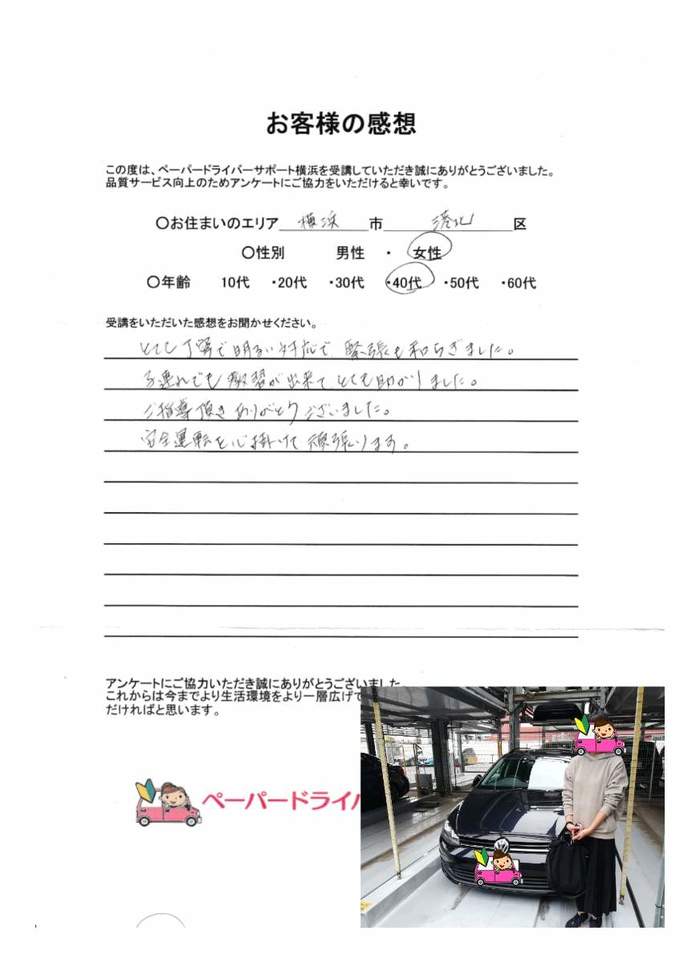 お客様の感想
この度は、ペーパードライバーサポート横浜を受講していただき誠にありがとうございました。
品質サービス向上のためアンケートにご協力をいただけると幸いです。
〇お住まいのエリア 横浜 市 港北 区
〇性別 男性 ・ 女性
〇年齢 10代 ・20代 ・30代 ・40代 ・50代 ・60代
受講をいただいた感想をお聞かせください。
とても丁寧で明るい対応で、緊張も和らぎました。
子連れでも教習が出来てとても助かりました。
ご指導頂きありがとうございました。
安全運転を心掛けて頑張ります。
アンケートにご協力いただき誠にありがとうございました
これからは今までより生活環境をより一層広げて
だければと思います。
ペーパードライバ